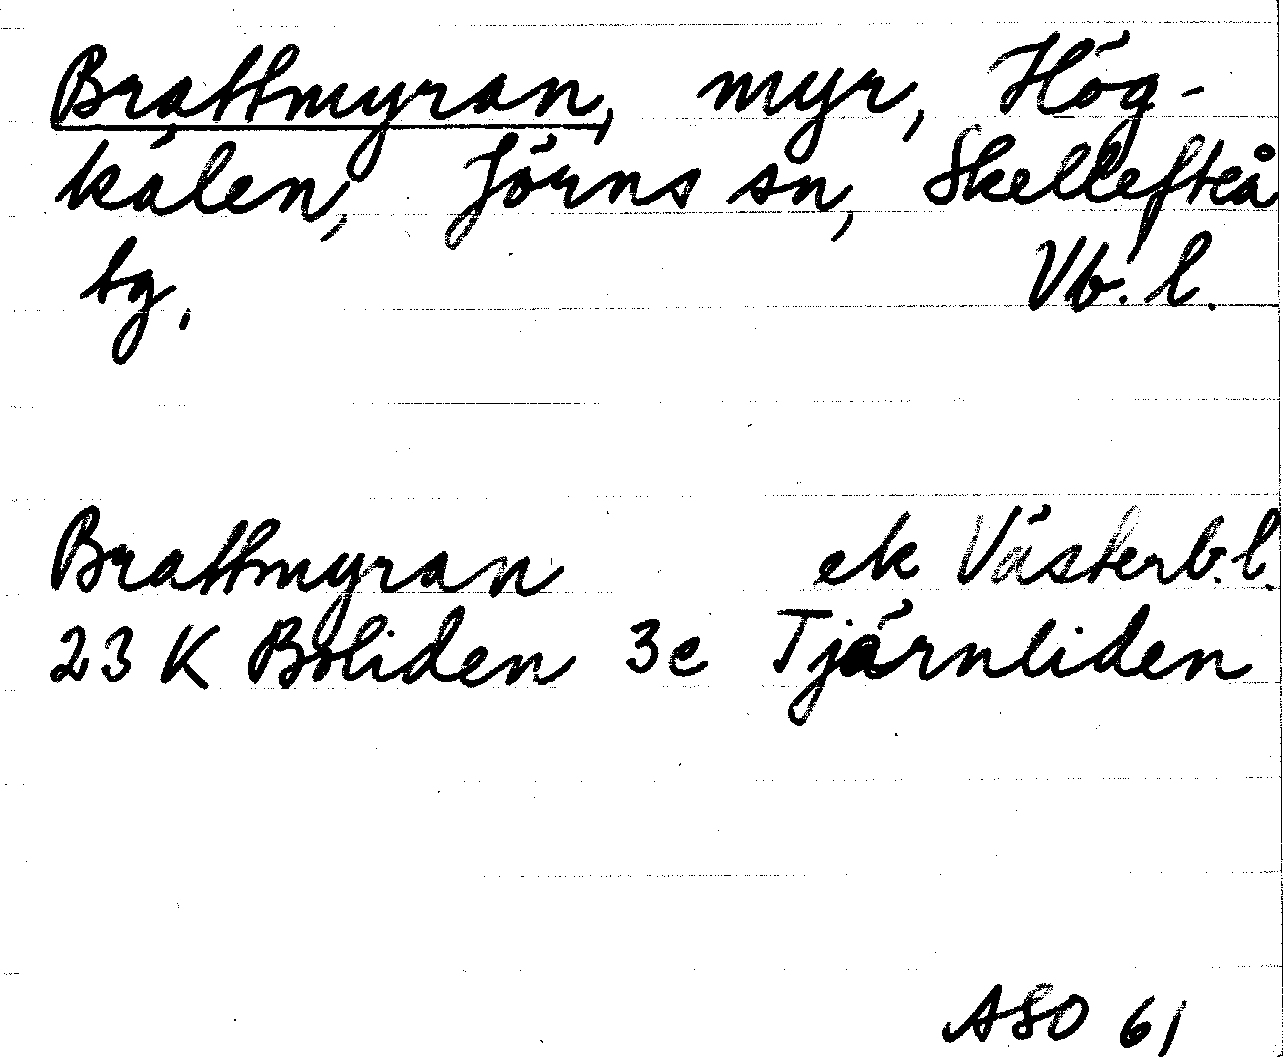 Brattmyran, myr, Hög-
kålen, Jörns sn, Skellefteå
tg, Vb. l.
Brattmyran ek Västerb. l.
23 K Boliden 3c Tjärnliden
ASO 61